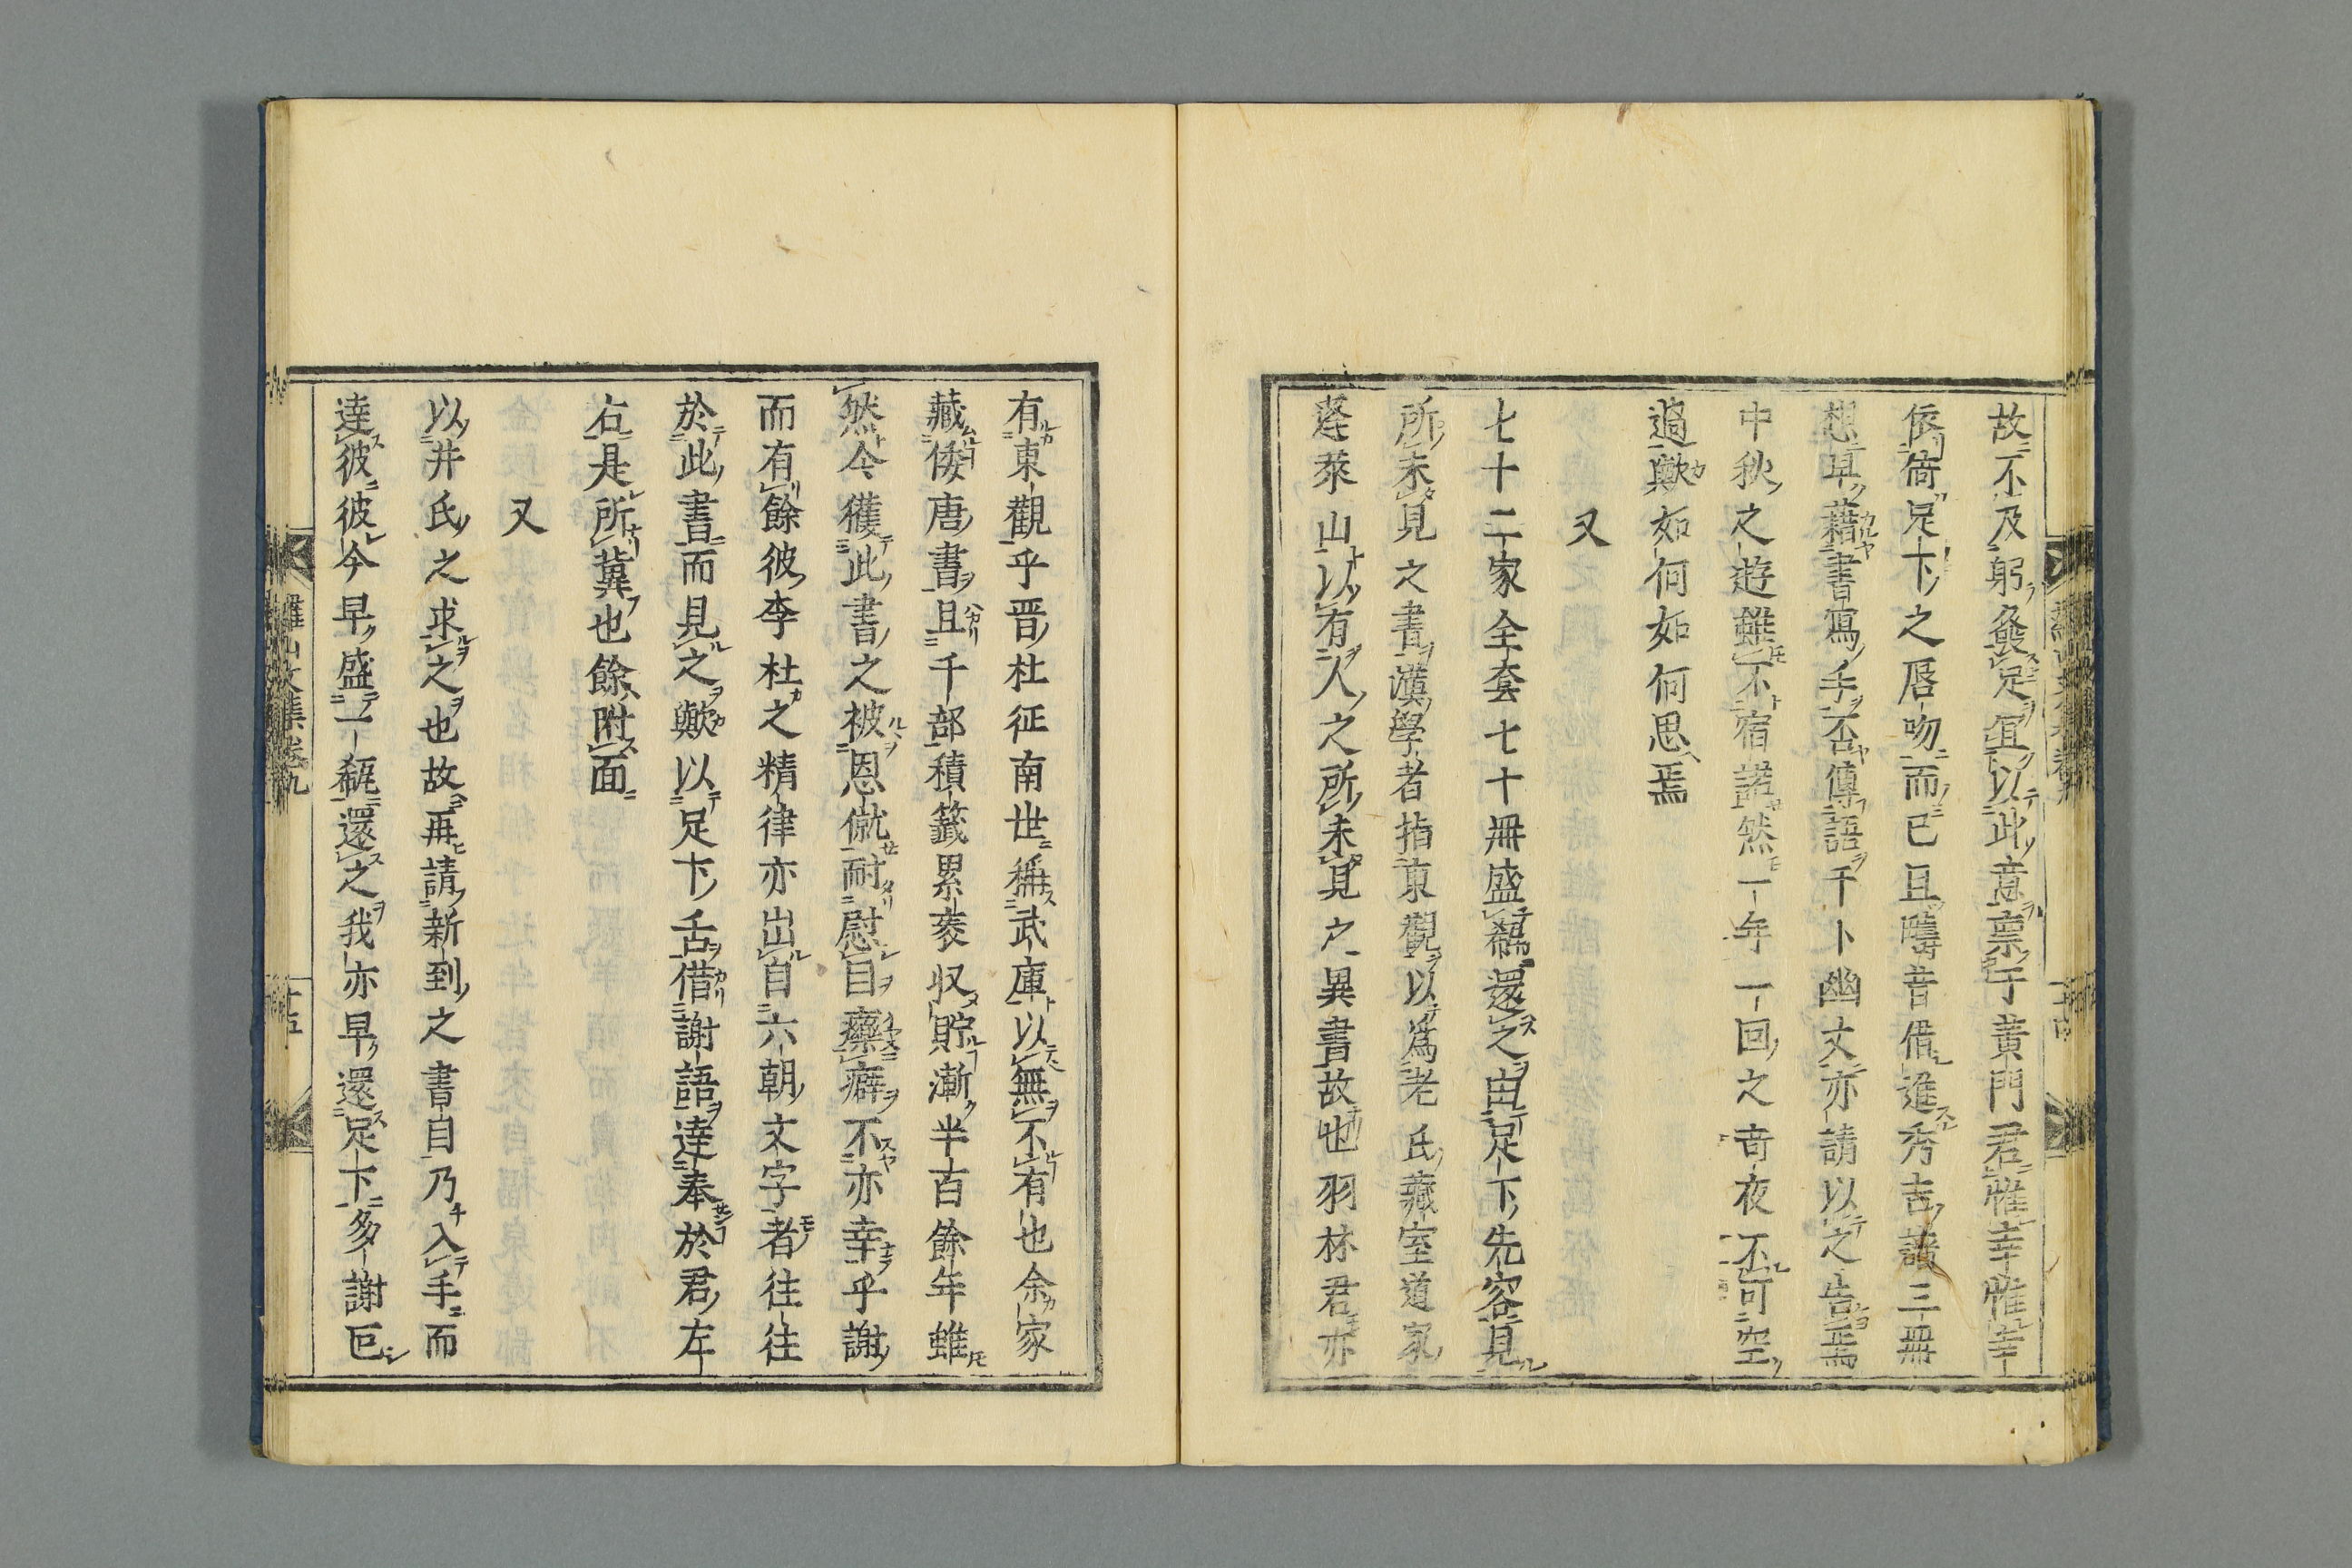 故不及躬發足宜以此意稟于黃門君惟幸惟幸
依倚足下之唇吻而已且疇昔借進秀吉譜三冊
想早藉書寫手否傳語千卜幽丈亦請以之告焉
中秋之遊雖不宿諾然一年一回之奇夜不可空
過歟如何如何思焉
又
七十二家全套七十冊盛瓻還之由足下先容見
所未見之書漢學者指東觀以爲老氏藏室道家
蓬萊山以有人之所未見之異書故也羽林君亦
有東觀乎晋杜征南世稱武庫以無不有也余家
藏倭唐書且千部積籖累袠収貯漸半百餘年雖
然今獲此書之被恩僦耐慰目藥癖不亦幸乎謝
而有餘彼李杜之精律亦出自六朝文字者往往
於此書而見之歟以足下舌借謝語達奉於君左
右是所冀也餘附面
又
以井氏之求之也故再請新到之書自乃入手而
達彼彼今早盛一瓻還之我亦早還足下多謝叵
羅山文集卷九
十五